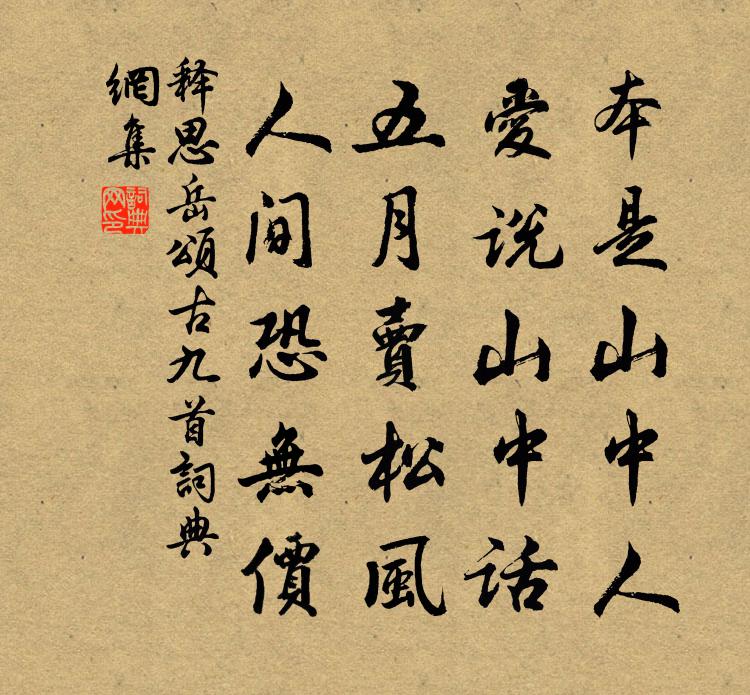 本是山中人
愛説山中話
五月賣松風
人间恐無價
释思岳頌古九首詞典
網集
詞典
网印